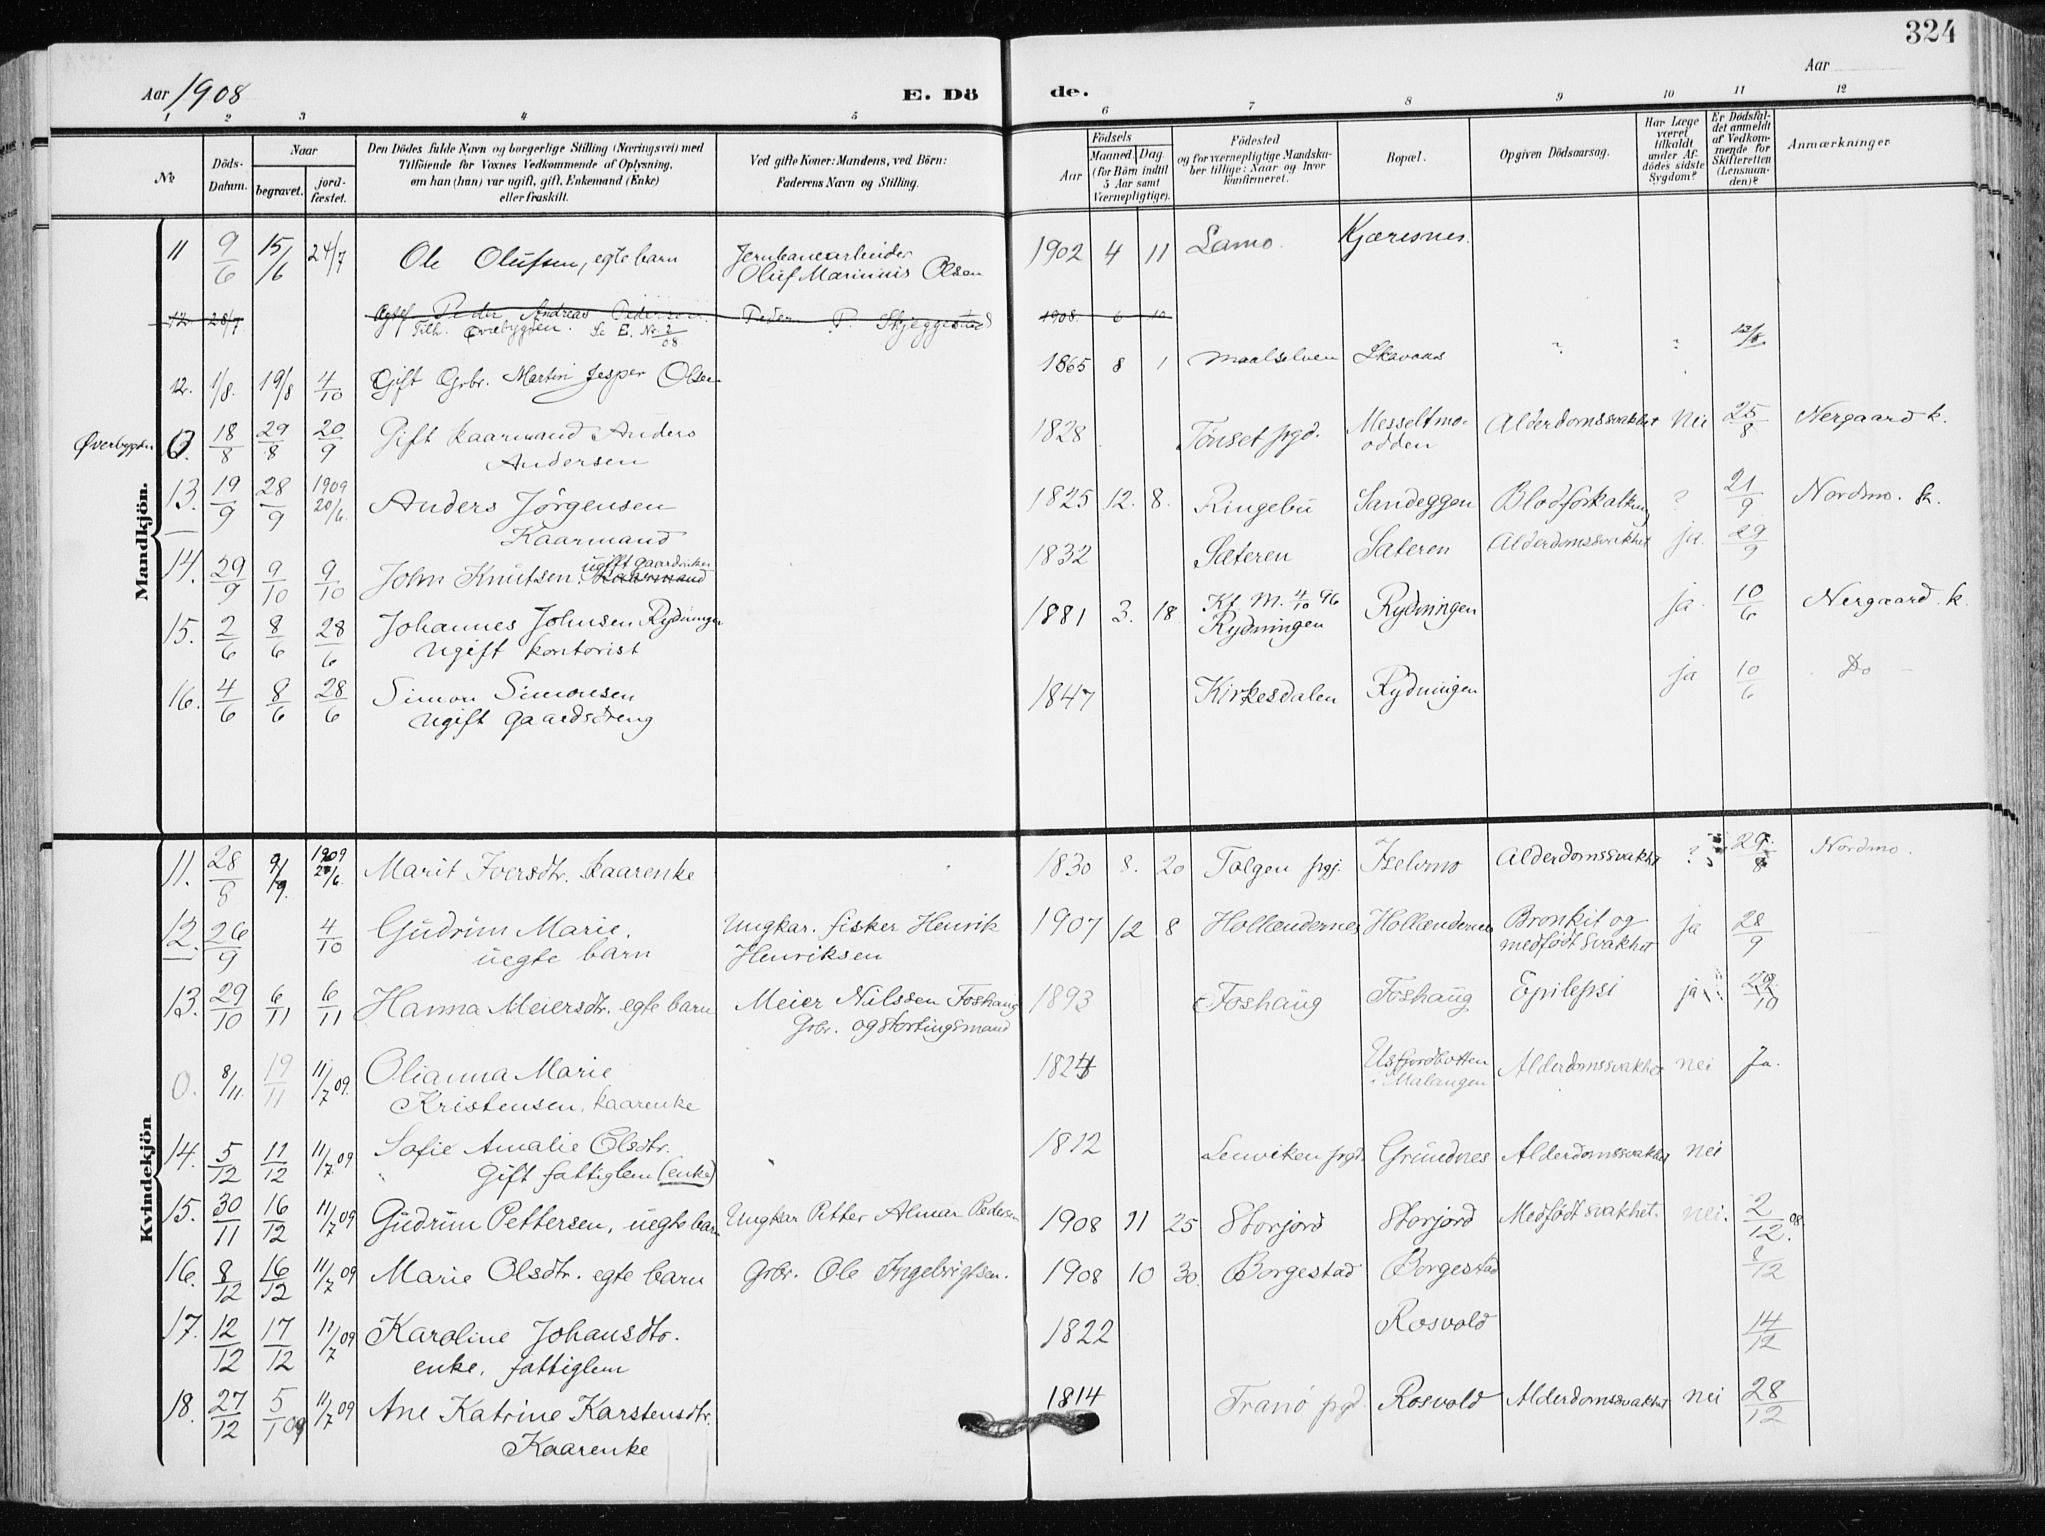 324
Aar 1908
E. Dö
de.
Aar
1 2 3 4 5 6 7 8 9 10 11 12
№
Döds-Datum.
Naar
begravet.
jord-fæstet.
Den Dödes fulde Navn og borgerlige Stilling (Næringsvei) med
Tilföiende for Voxnes Vedkommende af Oplysning,
om han (hun) var ugift, gift, Enkemand (Enke)
eller fraskilt.
Ved gifte Koner: Mandens, ved Börn:
Faderens Navn og Stilling.
Aar
Födsels
Maaned. Dag.
(for Börn indtil
5 Aar samt
Værnepligtige).
Födested
og for værnepligtige Mandska-
ber tillige: Naar og hvor
konfirmeret.
Bopæl.
Opgiven Dödsaarsag.
Har Læge
været
tilkaldt
under Af-
dödes sidste
Sygdom?
Er Dödsfal-
det anmeldt
af Vedkom-
mende for
Skifteretten
(Lensman-
den)?
Anmærkninger
Mandkjön.
11 9/6 15/6 24/7 Ole Olufsen, egte barn Jernbanearbeider 1902 4 11 Lamo. Kjæresnes.
Oluf Marinius Olsen
12 28/7 Peder Andreas Pedersen Peder P. Skjeggestad 1908 6
Tilh. Øvrebygden. Se E. Nr. 2/08.
12. 1/8. 19/8 4/10 Gift Grbr. Martin Jesper Olsen 1865 8 1 Maalselven ? ?
Øverbygden 0. 18/8 29/8 20/9 Gift kaarmand Anders 1828 Tönset prgd. Messeltmo- Alderdomssvakhet Nei 25/8 Nergaard k.
Andersen odden
13. 19/9 28/9 1909 20/6. Anders Jörgensen 1825 12. 8. Ringebu Sandeggen Blodforkalkning ? 21/9 Nordmo. k.
Kaarmand
14. 29/9 9/10 9/10 John Knutsen. ugift gaardbruker 1832 Sæteren Sæteren Alderdomssvakhet ja. 29/9
15. 2/6 8/6 28/6 Johannes Johnsen Rydningen 1881 3. 18. Kf. M. 4/10 96 Rydningen ja 10/6 Nergaard. k.
Ugift kontorist Rydningen
16. 4/6 8/6 28/6 Simon Simonsen 1847 Kirkesdalen Rydningen ja 10/6 Do
Ugift gaardsdreng
Kvindekjön
11. 28/8 9/9. 1909 20/6. Marit Iversdtr. kaarenke 1830 8. 20 Tolgen prgj. Iselvmo Alderdomssvakhet ? 29/8 Nordmo.
12. 26/9 4/10 Gudrun Marie. Ungkar. fisker Henrik 1907 12 8 Hollændernes Hollændernes Bronkit og ja 28/9
uegte barn Henriksen medfödt svakhet
13. 29/10 6/11 6/11 Hanna Meiersdtr. egte barn Meier Nilssen Foshaug 1893 Foshaug Foshaug Epilepsi ja
Grbr. og stortingsmand
0. 8/11. 19/11 11/7 09. Olianna Marie Alderdomssvakhet nei Ja.
Kristensen, kaarenke i Malangen
14. 5/12 11/12 11/7 09 Sofie Amalie Olsdtr. 1812 Lenviken prgd. Grundnes Alderdomssvakhet nei
Gift fattiglem (enke)
15. 30/11 16/12 11/7 09 Gudrun Pettersen, uegte barn Ungkar Petter Almar Pedersen 1908 11 25 Storjord Storjord Medfödt svakhet. nei. 2/12. 08.
16. 8/12 16/12 11/7 09 Marie Olsdtr. egte barn Grbr. Ole Ingebrigtsen. 1908 10 30. Borgestad Borgestad 8/12
17. 12/12 17/12 11/7 09 Karoline Johansdtr. 1822 Rosvold 14/12
enke. fattiglem
18. 27/12 5/1 09 11/7 09 Ane Katrine Karstensdtr. 1814 Tranö prgd. Rosvold Alderdomssvakhet nei 28/12
Kaarenke